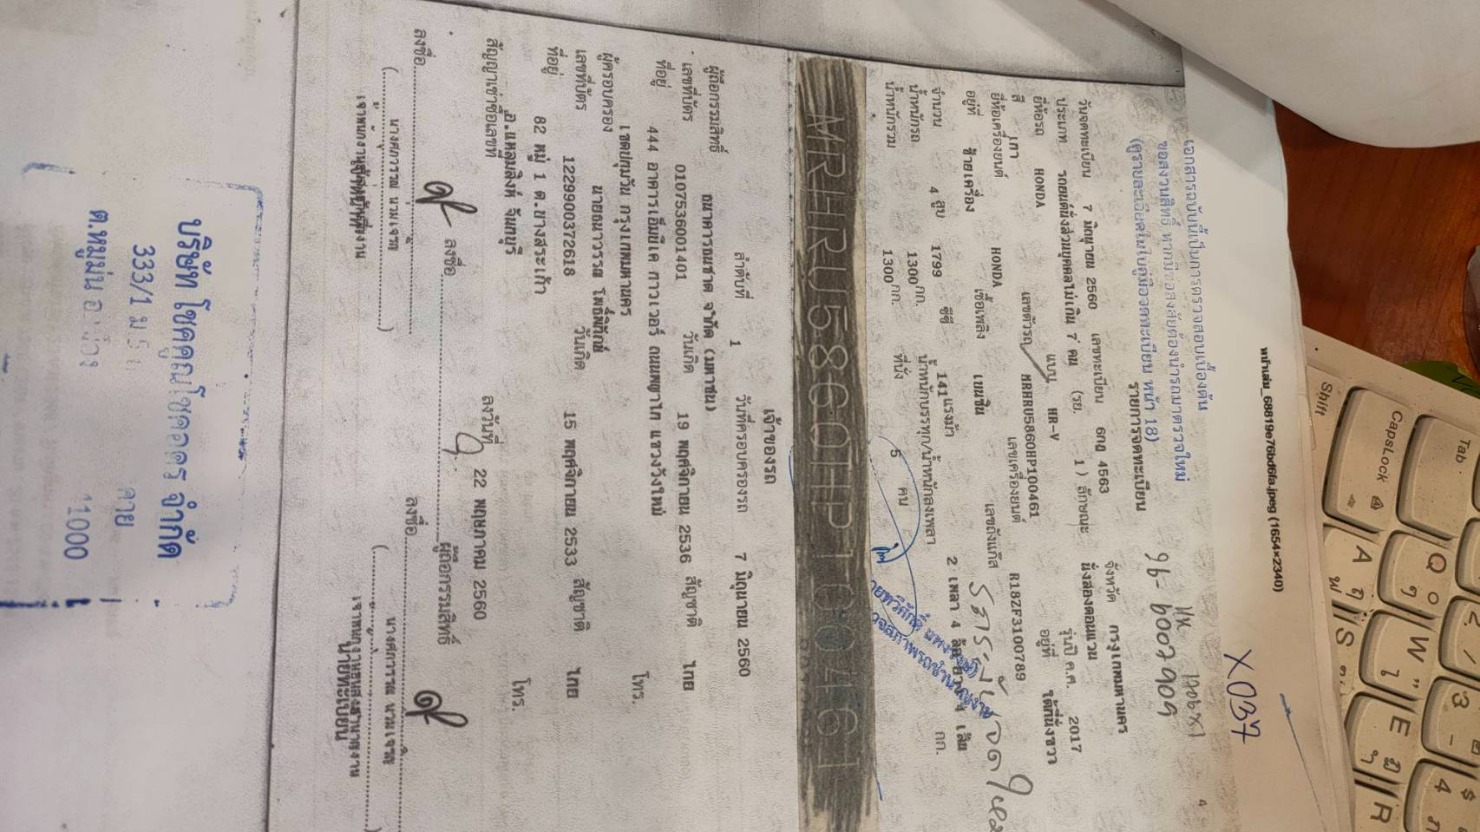 หน้าเล่ม_68819e76bd6fa.jpeg (1654×2340)
X037
4
เอกสารฉบับนี้เป็นการตรวจสอบเบื้องต้น
ขอสงวนสิทธิ์ หากมีข้อสงสัยต้องนำรถมาตรวจใหม่
(ดูรายละเอียดในคู่มือจดทะเบียน หน้า 18)
รายการจดทะเบียน
วันจดทะเบียน 7 มิถุนายน 2560 เลขทะเบียน 6กฎ 4563 จังหวัด กรุงเทพมหานคร
ประเภท รถยนต์นั่งส่วนบุคคลไม่เกิน 7 คน (รย. 1 ) ลักษณะ นั่งสองตอนแวน
ยี่ห้อรถ HONDA แบบ HR-V รุ่นปี ค.ศ. 2017
สี เทา เลขตัวรถ MRHRU5860HP100461 อยู่ที่ ใต้ที่นั่งขวา
ยี่ห้อเครื่องยนต์ HONDA เลขเครื่องยนต์ R18ZF3100789
อยู่ที่ ซ้ายเครื่อง เชื้อเพลิง เบนซิน เลขถังแก๊ส
จำนวน 4 สูบ 1799 ซีซี 141 แรงม้า 2 เพลา 4 ล้อ ยาง 4 เส้น
น้ำหนักรถ 1300 กก. น้ำหนักบรรทุก/น้ำหนักลงเพลา กก.
น้ำหนักรวม 1300 กก. ที่นั่ง 5 คน
MRHRU5860HP100461
เจ้าของรถ
ลำดับที่ 1 วันที่ครอบครองรถ 7 มิถุนายน 2560
ผู้ถือกรรมสิทธิ์ ธนาคารธนชาต จำกัด (มหาชน)
เลขที่บัตร 0107536001401 วันเกิด 19 พฤศจิกายน 2536 สัญชาติ ไทย
ที่อยู่ 444 อาคารเอ็มบีเค ทาวเวอร์ ถนนพญาไท แขวงวังใหม่
เขตปทุมวัน กรุงเทพมหานคร โทร.
ผู้ครอบครอง นายธนาวรรธ โพธิ์พิทักษ์
เลขที่บัตร 1229900372618 วันเกิด 15 พฤศจิกายน 2533 สัญชาติ ไทย
ที่อยู่ 82 หมู่ 1 ต.บางสระเก้า
อ.แหลมสิงห์ จันทบุรี โทร.
สัญญาเช่าซื้อเลขที่ ลงวันที่ 22 พฤษภาคม 2560
ลงชื่อ ผู้ถือกรรมสิทธิ์
ลงชื่อ ลงชื่อ
เจ้าพนักงาน นายทะเบียน
บริษัท โชคคูณโชคอดร จำกัด
333/1 ม.
ต.หมูม่น อ.เมือง
41000
Tab
CapsLock
Shift
Q W E R
A S
2 3 4